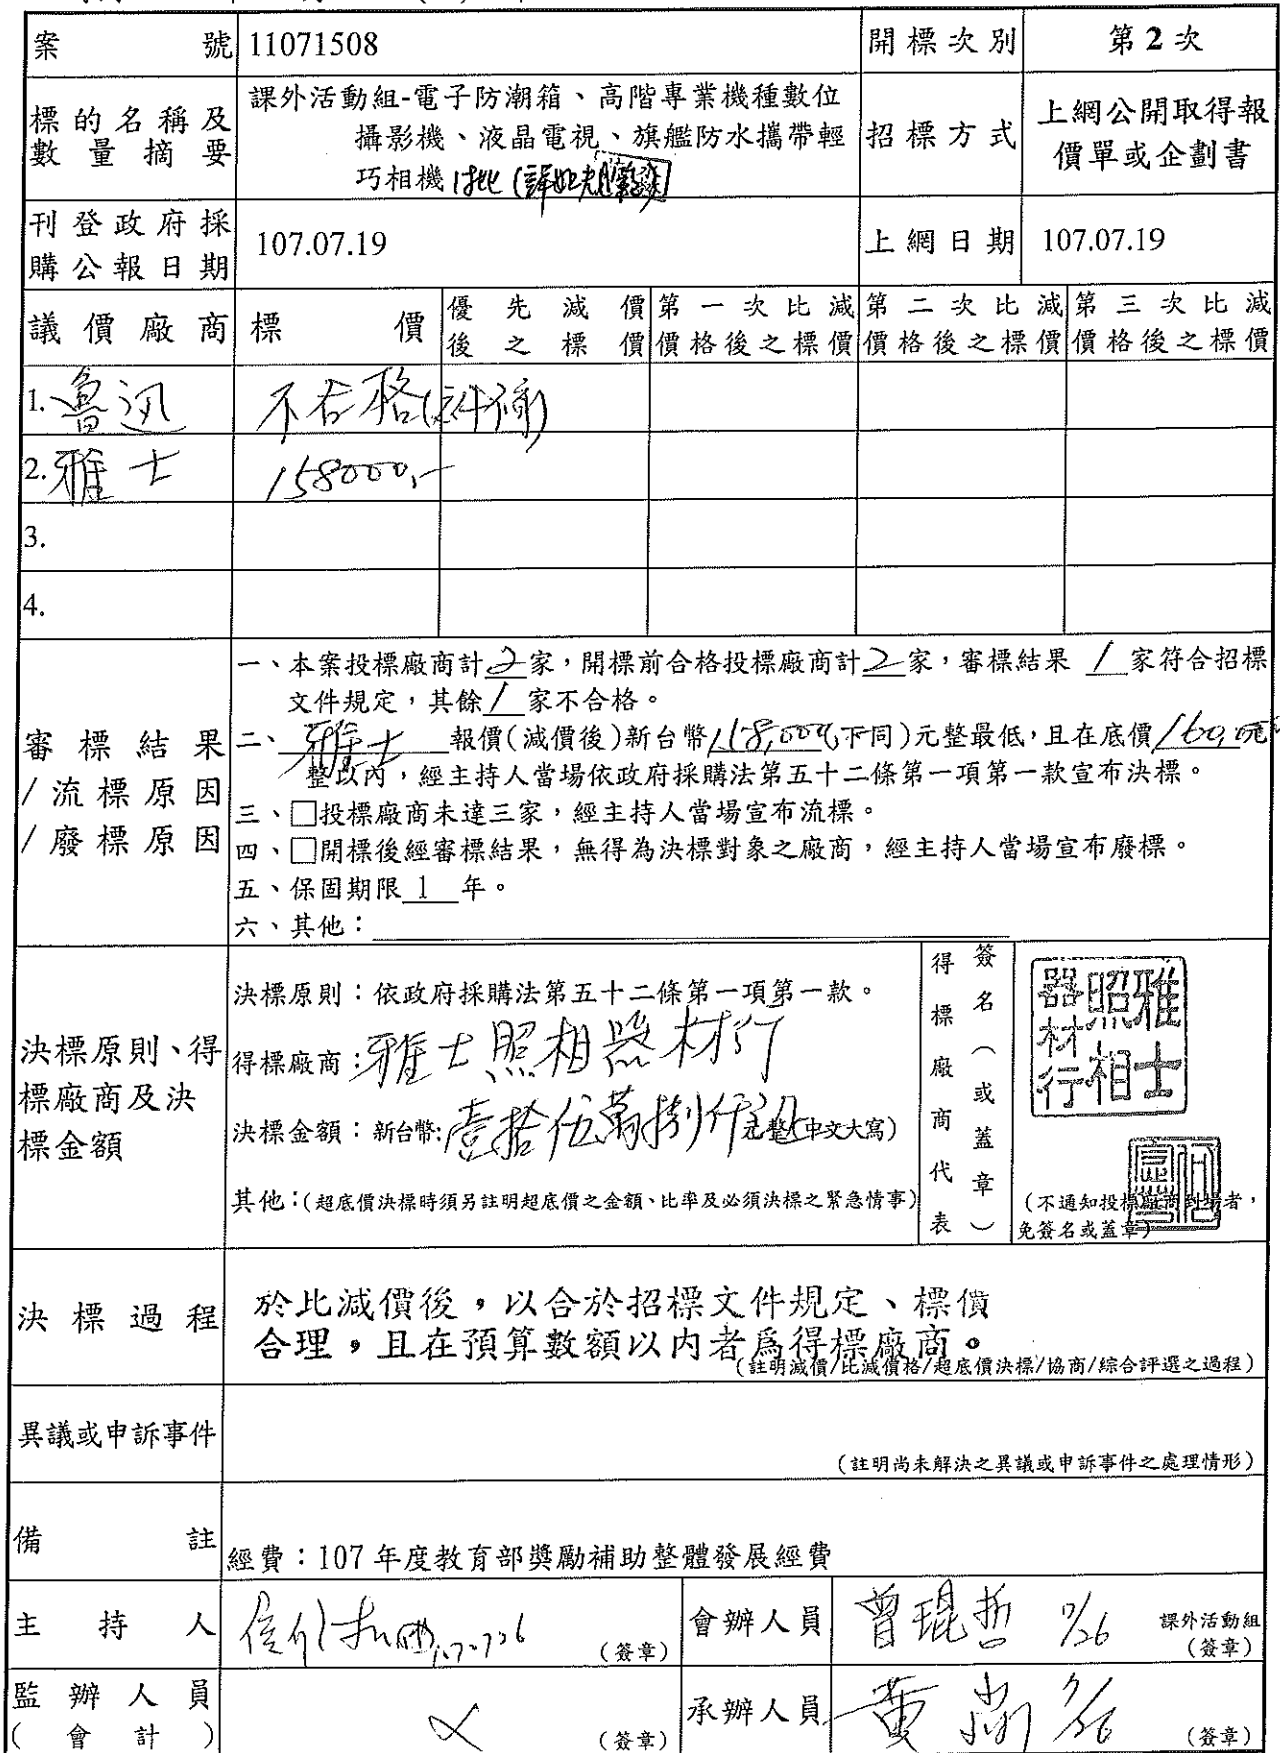 案號 11071508 開標次別 第2次
標的名稱及數量摘要 課外活動組-電子防潮箱、高階專業機種數位
攝影機、液晶電視、旗艦防水攜帶輕
巧相機1批
招標方式 上網公開取得報
價單或企劃書
刊登政府採
購公報日期 107.07.19 上網日期 107.07.19
議價廠商 標價 優先減價後之標價 第一次比減價格後之標價 第二次比減價格後之標價 第三次比減價格後之標價
1. 魯迅 不合格
2. 雅士 158000,-
3.
4.
審標結果
/流標原因
/廢標原因
一、本案投標廠商計2家,開標前合格投標廠商計2家,審標結果 1家符合招標
文件規定,其餘1家不合格。
二、雅士報價(減價後)新台幣158,000(下同)元整最低,且在底價160,000元
整以內,經主持人當場依政府採購法第五十二條第一項第一款宣布決標。
三、□投標廠商未達三家,經主持人當場宣布流標。
四、□開標後經審標結果,無得為決標對象之廠商,經主持人當場宣布廢標。
五、保固期限 1 年。
六、其他:
決標原則、得
標廠商及決
標金額
決標原則:依政府採購法第五十二條第一項第一款。
得標廠商:雅士照相器材行
決標金額:新台幣:壹拾伍萬捌仟元整(中文大寫)
其他:(超底價決標時須另註明超底價之金額、比率及必須決標之緊急情事)
得標廠商代表
簽名(或蓋章)
雅士
照相
器材行
(不通知投標廠商到場者,
免簽名或蓋章)
決標過程
於比減價後,以合於招標文件規定、標價
合理,且在預算數額以内者爲得標廠商。
(註明減價/比減價格/超底價決標/協商/綜合評選之過程)
異議或申訴事件
(註明尚未解決之異議或申訴事件之處理情形)
備註 經費:107年度教育部獎勵補助整體發展經費
主持人 (簽章) 會辦人員 曾琨哲 7/26 課外活動組
(簽章)
監辦人員
(會計) (簽章) 承辦人員 7/26 (簽章)